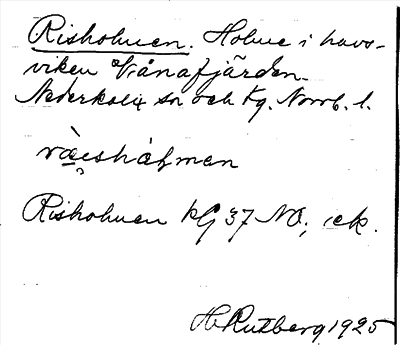 Risholmen. Holme i havs-
viken Vånafjärden.
Nederkalix sn och tg. Norrb. l.
Risholmen kG 37 NO; ek.
H Rutberg 1925